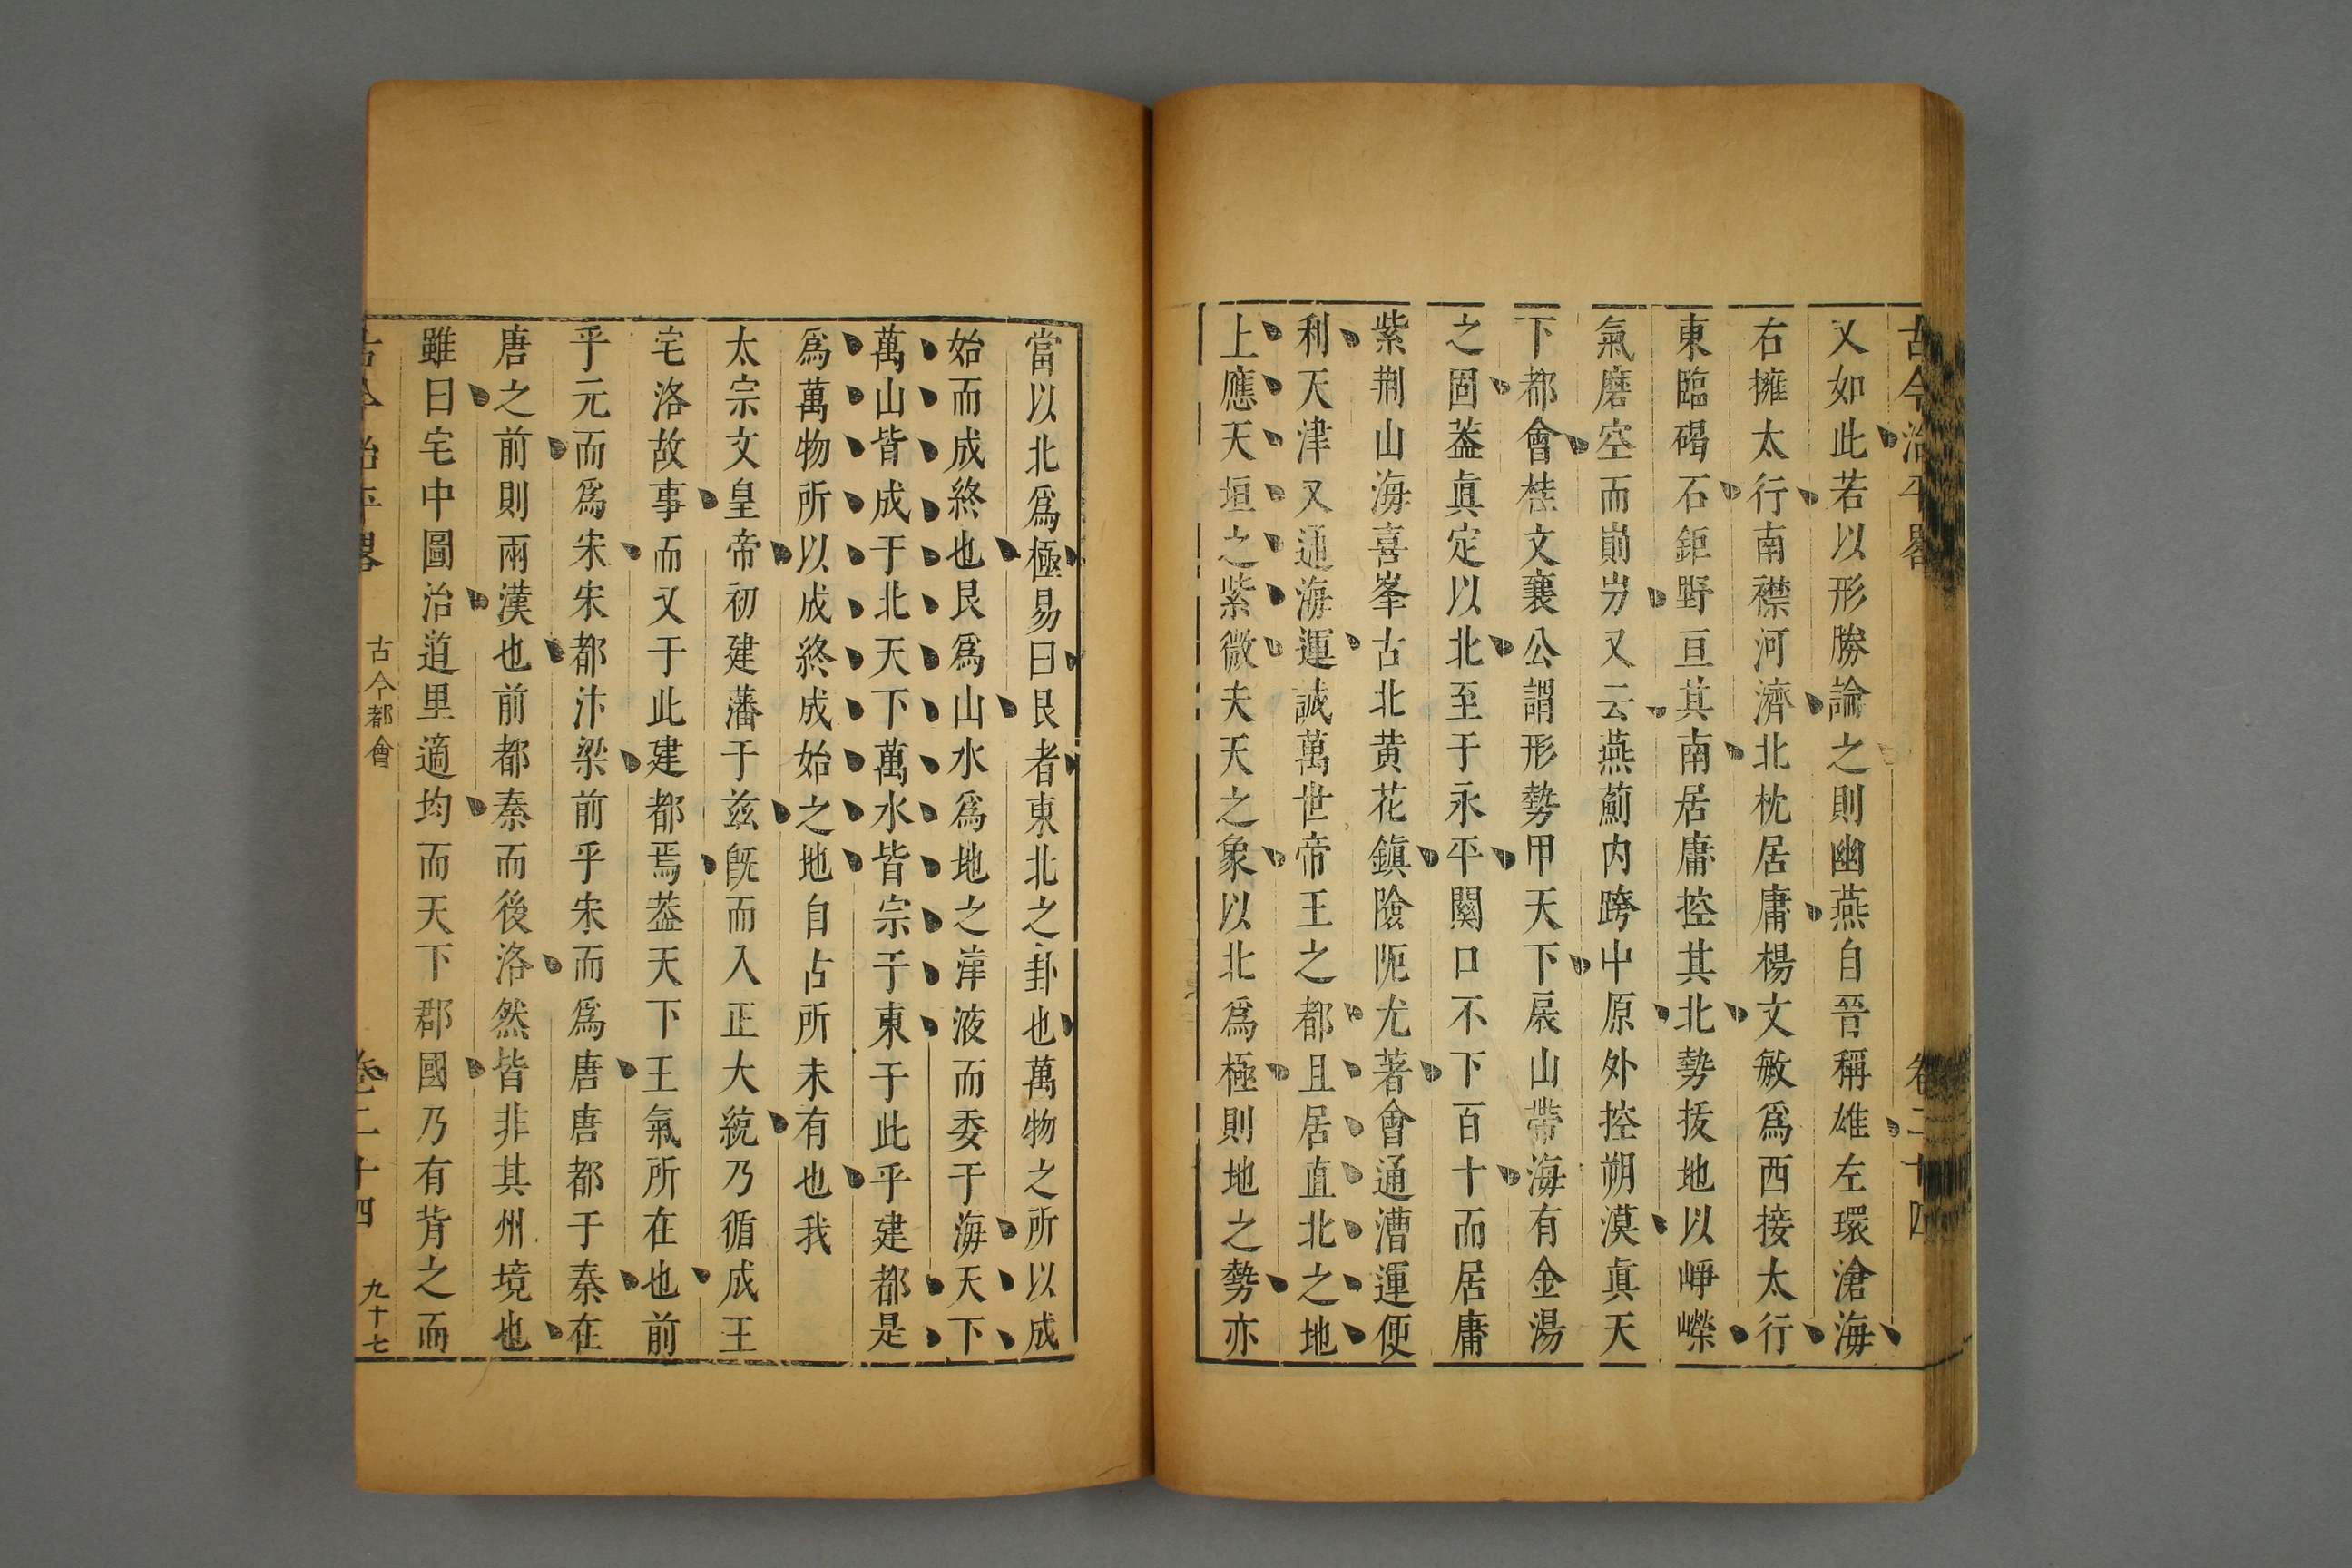 古今治平畧 卷二十四
又如此若以形勝論之則幽燕自晉稱雄左環滄海
右擁太行南襟河濟北枕居庸楊文敏為西接太行
東臨碣石鉅野亘其南居庸控其北勢拔地以崢嶸
氣磨空而崱屴又云燕薊内跨中原外控朔漠眞天
下都會桂文襄公謂形勢甲天下扆山帶海有金湯
之固葢眞定以北至于永平關口不下百十而居庸
紫荆山海喜峯古北黄花鎮險阨尤著會通漕運便
利天津又通海運誠萬世帝王之都且居直北之地
上應天垣之紫微夫天之象以北爲極則地之勢亦
當以北爲極易曰艮者東北之卦也萬物之所以成
始而成終也艮爲山水爲地之津液而委于海天下
萬山皆成于北天下萬水皆宗于東于此乎建都是
爲萬物所以成終成始之地自古所未有也我
太宗文皇帝初建藩于兹旣而入正大統乃循成王
宅洛故事而又于此建都焉葢天下王氣所在也前
乎元而爲宋宋都汴梁前乎宋而爲唐唐都于秦在
唐之前則兩漢也前都秦而後洛然皆非其州境也
雖曰宅中圖治道里適均而天下郡國乃有背之而
古今治平畧 古今都會 卷二十四 九十七